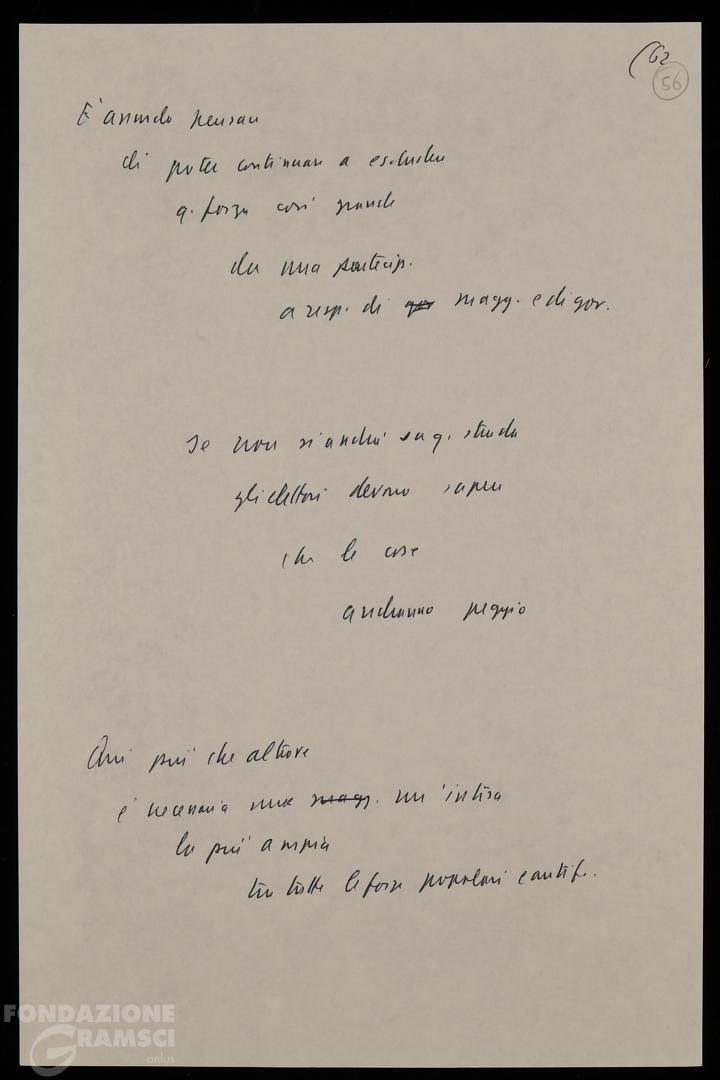 (62
56
E' assurdo pensare
di poter continuare a escludere
q. forza così grande
da una partecip.
a resp. di magg. e di gov.
Se non si andrà su q. strada
gli elettori devono sapere
che le cose
andranno peggio
Qui più che altrove
è necessaria una magg. un'intesa
la più ampia
tra tutte le forze popolari e antif.
FONDAZIONE
GRAMSCI
onlus